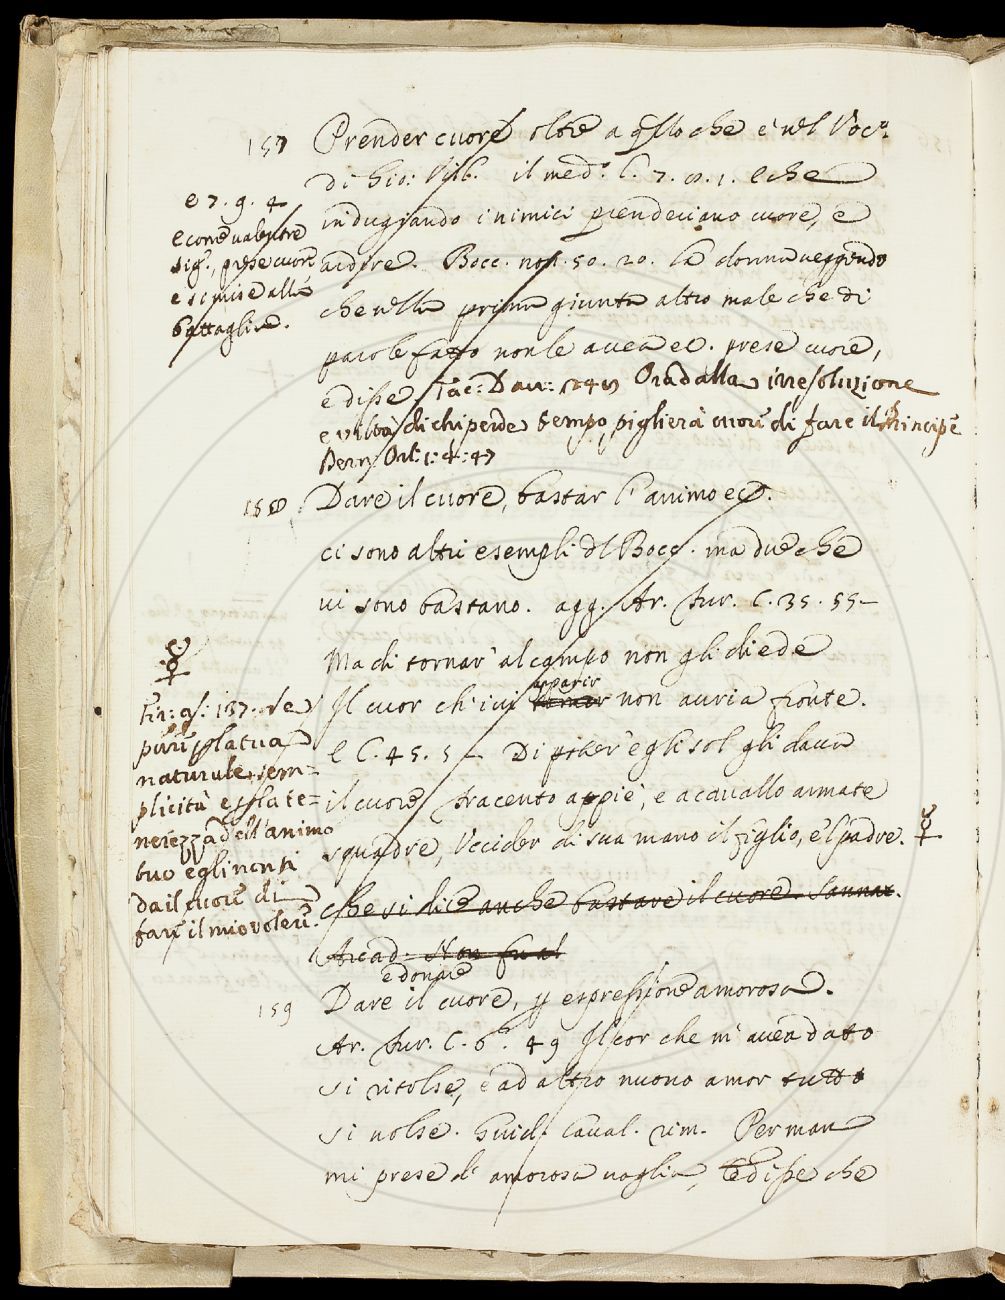 157 Prender cuore oltre a q̃llo che è nel Voc.º
di Gio: Vill. il med.º l. 7. 8. 1. e che
indugiando i nimici prendeviano cuore, e
ardire. Bocc. nov. 50. 20. la donna veggendo
che nella prima giunta altro male che di
parole fatto non le avea ec. prese cuore,
e disse Tac: Dav: Ora dalla irresoluzione
e viltà di chi perde tempo, piglierà cuore di fare il Principe
Bern Orl: 1: 4: 47
e 7. 9. 4
e come valentre
sig.r, prese cuore
e si mise alla
battaglia.
158 Dare il cuore, bastar l'animo ec.
ci sono altri esempli dl Bocc. ma due che
vi sono bastano. agg. Ar. Fur. C. 35. 55-
Ma di tornar' al campo non gli diede
apparir
Il cuor ch'ivi tornar non avria fronte.
e C. 45. 5 - Di poter' egli sol gli dava
il cuore tracento appiè, e a cavallo armate
squadre, Uccider di sua mano il figlio, e'l padre.
che si dice anche bastare il cuore. Sannaz.
Arcad: Non fu al
Fir: 137. Ne
pure p la tua
naturale sem=
plicità e p la te=
nerezza dell'animo
tuo egli non ti
da il cuore di
fare il mio volere.
e donare
159 Dare il cuore, p espressione amorosa.
Ar. Fur. C. 6º. 49 Il cor che m'avea dato
si ritolse, e ad altro nuovo amor tutto
si volse. Guid. Caval. rim. Per man
mi prese d'amorosa voglia, e disse che